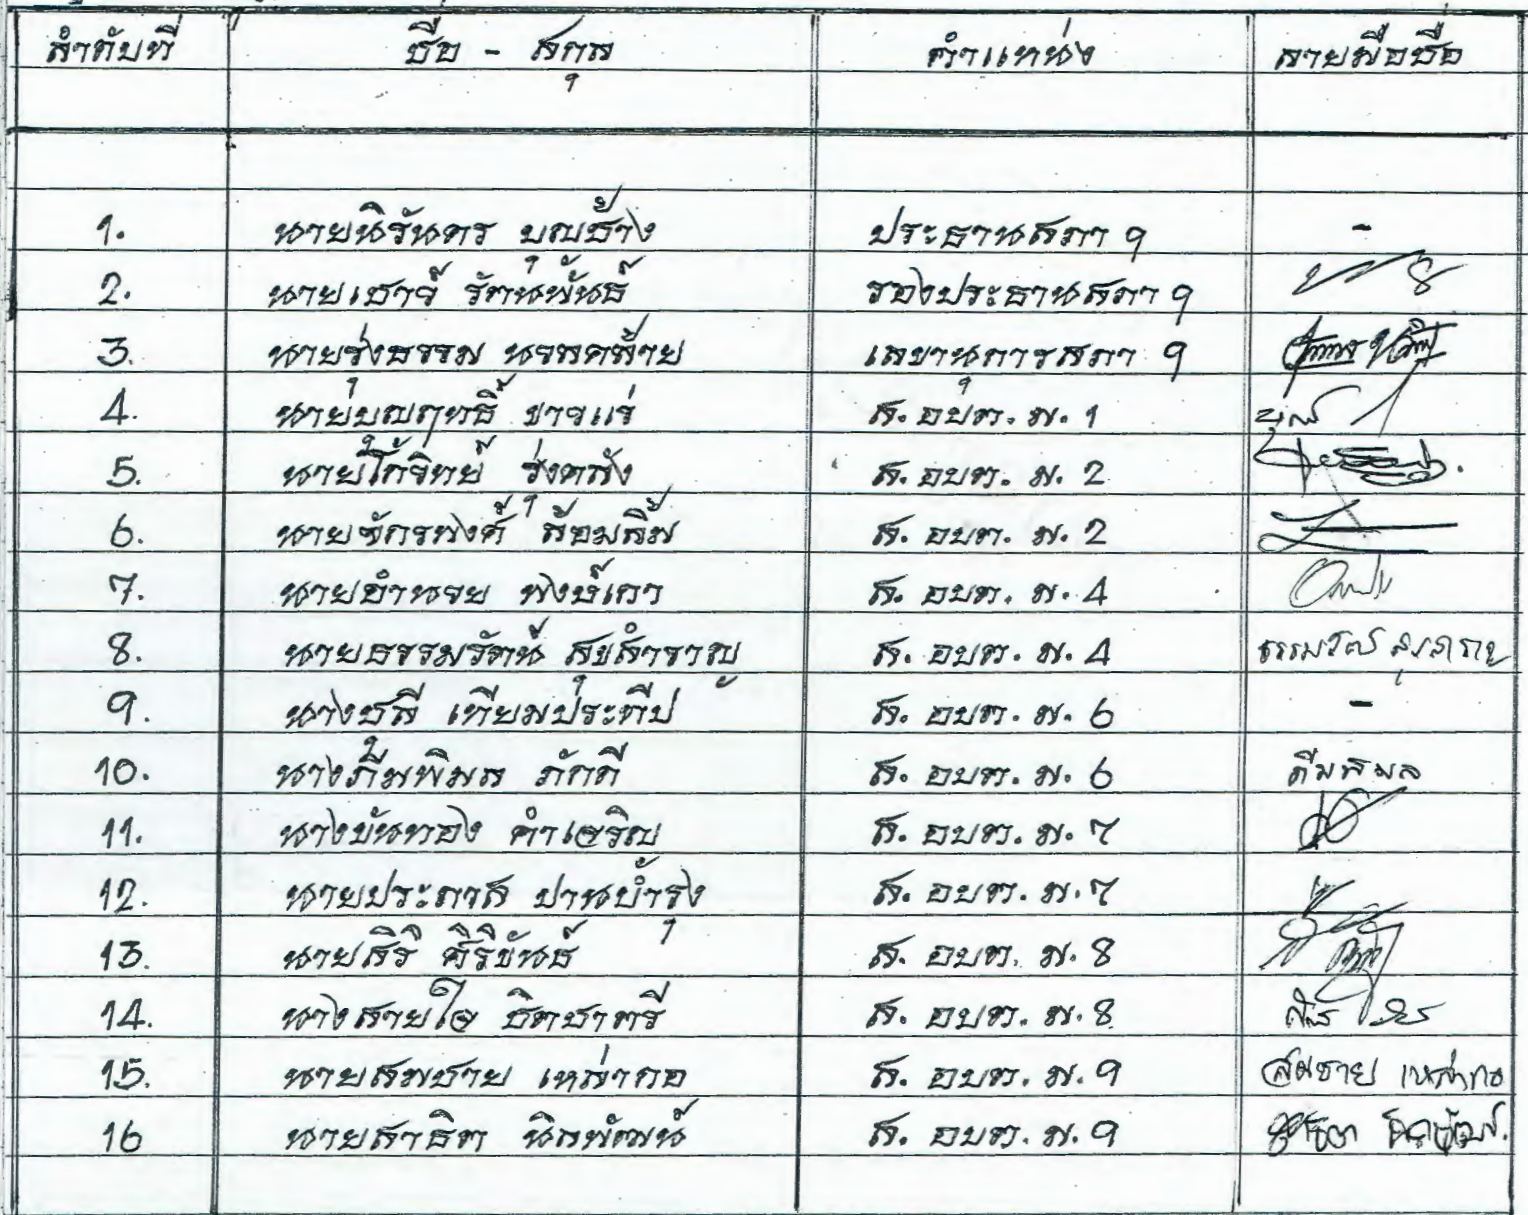 ลำดับที่ ชื่อ - สกุล ตำแหน่ง ลายมือชื่อ
1. นายนิรันดร บุญช้าง ประธานสภา ฯ -
2. นายเชาว์ รัตนพันธ์ รองประธานสภา ฯ
3. นายรุ่งธรรม นวลคล้าย เลขานุการสภา ฯ
4. นายบุญฤทธิ์ ขาวแร่ ส. อบต. ม. 1
5. นายโกวิทย์ ส. อบต. ม. 2
6. นายจักรพงศ์ ล้อมลิ้ม ส. อบต. ม. 2
7. นายอำนวย พงษ์เกา ส. อบต. ม. 4
8. นายธรรมรัตน์ สุขสำราญ ส. อบต. ม. 4
9. นางชูลี เทียมประทีป ส. อบต. ม. 6 -
10. นางภีมพิมล ภักดี ส. อบต. ม. 6 ภีมพิมล
11. นางขันทอง คำเจริญ ส. อบต. ม. 7
12. นายประภาส ปานบำรุง ส. อบต. ม. 7
13. นายสิริ ศิริขันธ์ ส. อบต. ม. 8
14. นางสายใจ ชิตชาตรี ส. อบต. ม. 8
15. นายสมชาย เหล่ากอ ส. อบต. ม. 9 สมชาย เหล่ากอ
16 นายสาธิต นิลพัฒน์ ส. อบต. ม. 9